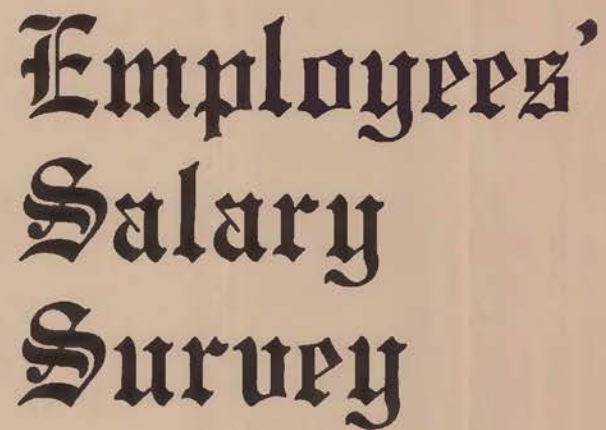 Employees'
Salary
Survey